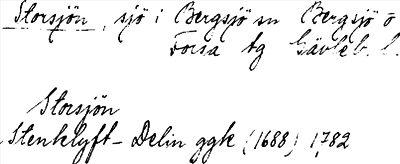 Storsjön, sjö i Bergsjö sn Bergsjö o
Forsa tg Gävleb. l.
Storsjön
Stenklyft - Delin ggk (1688) 1782